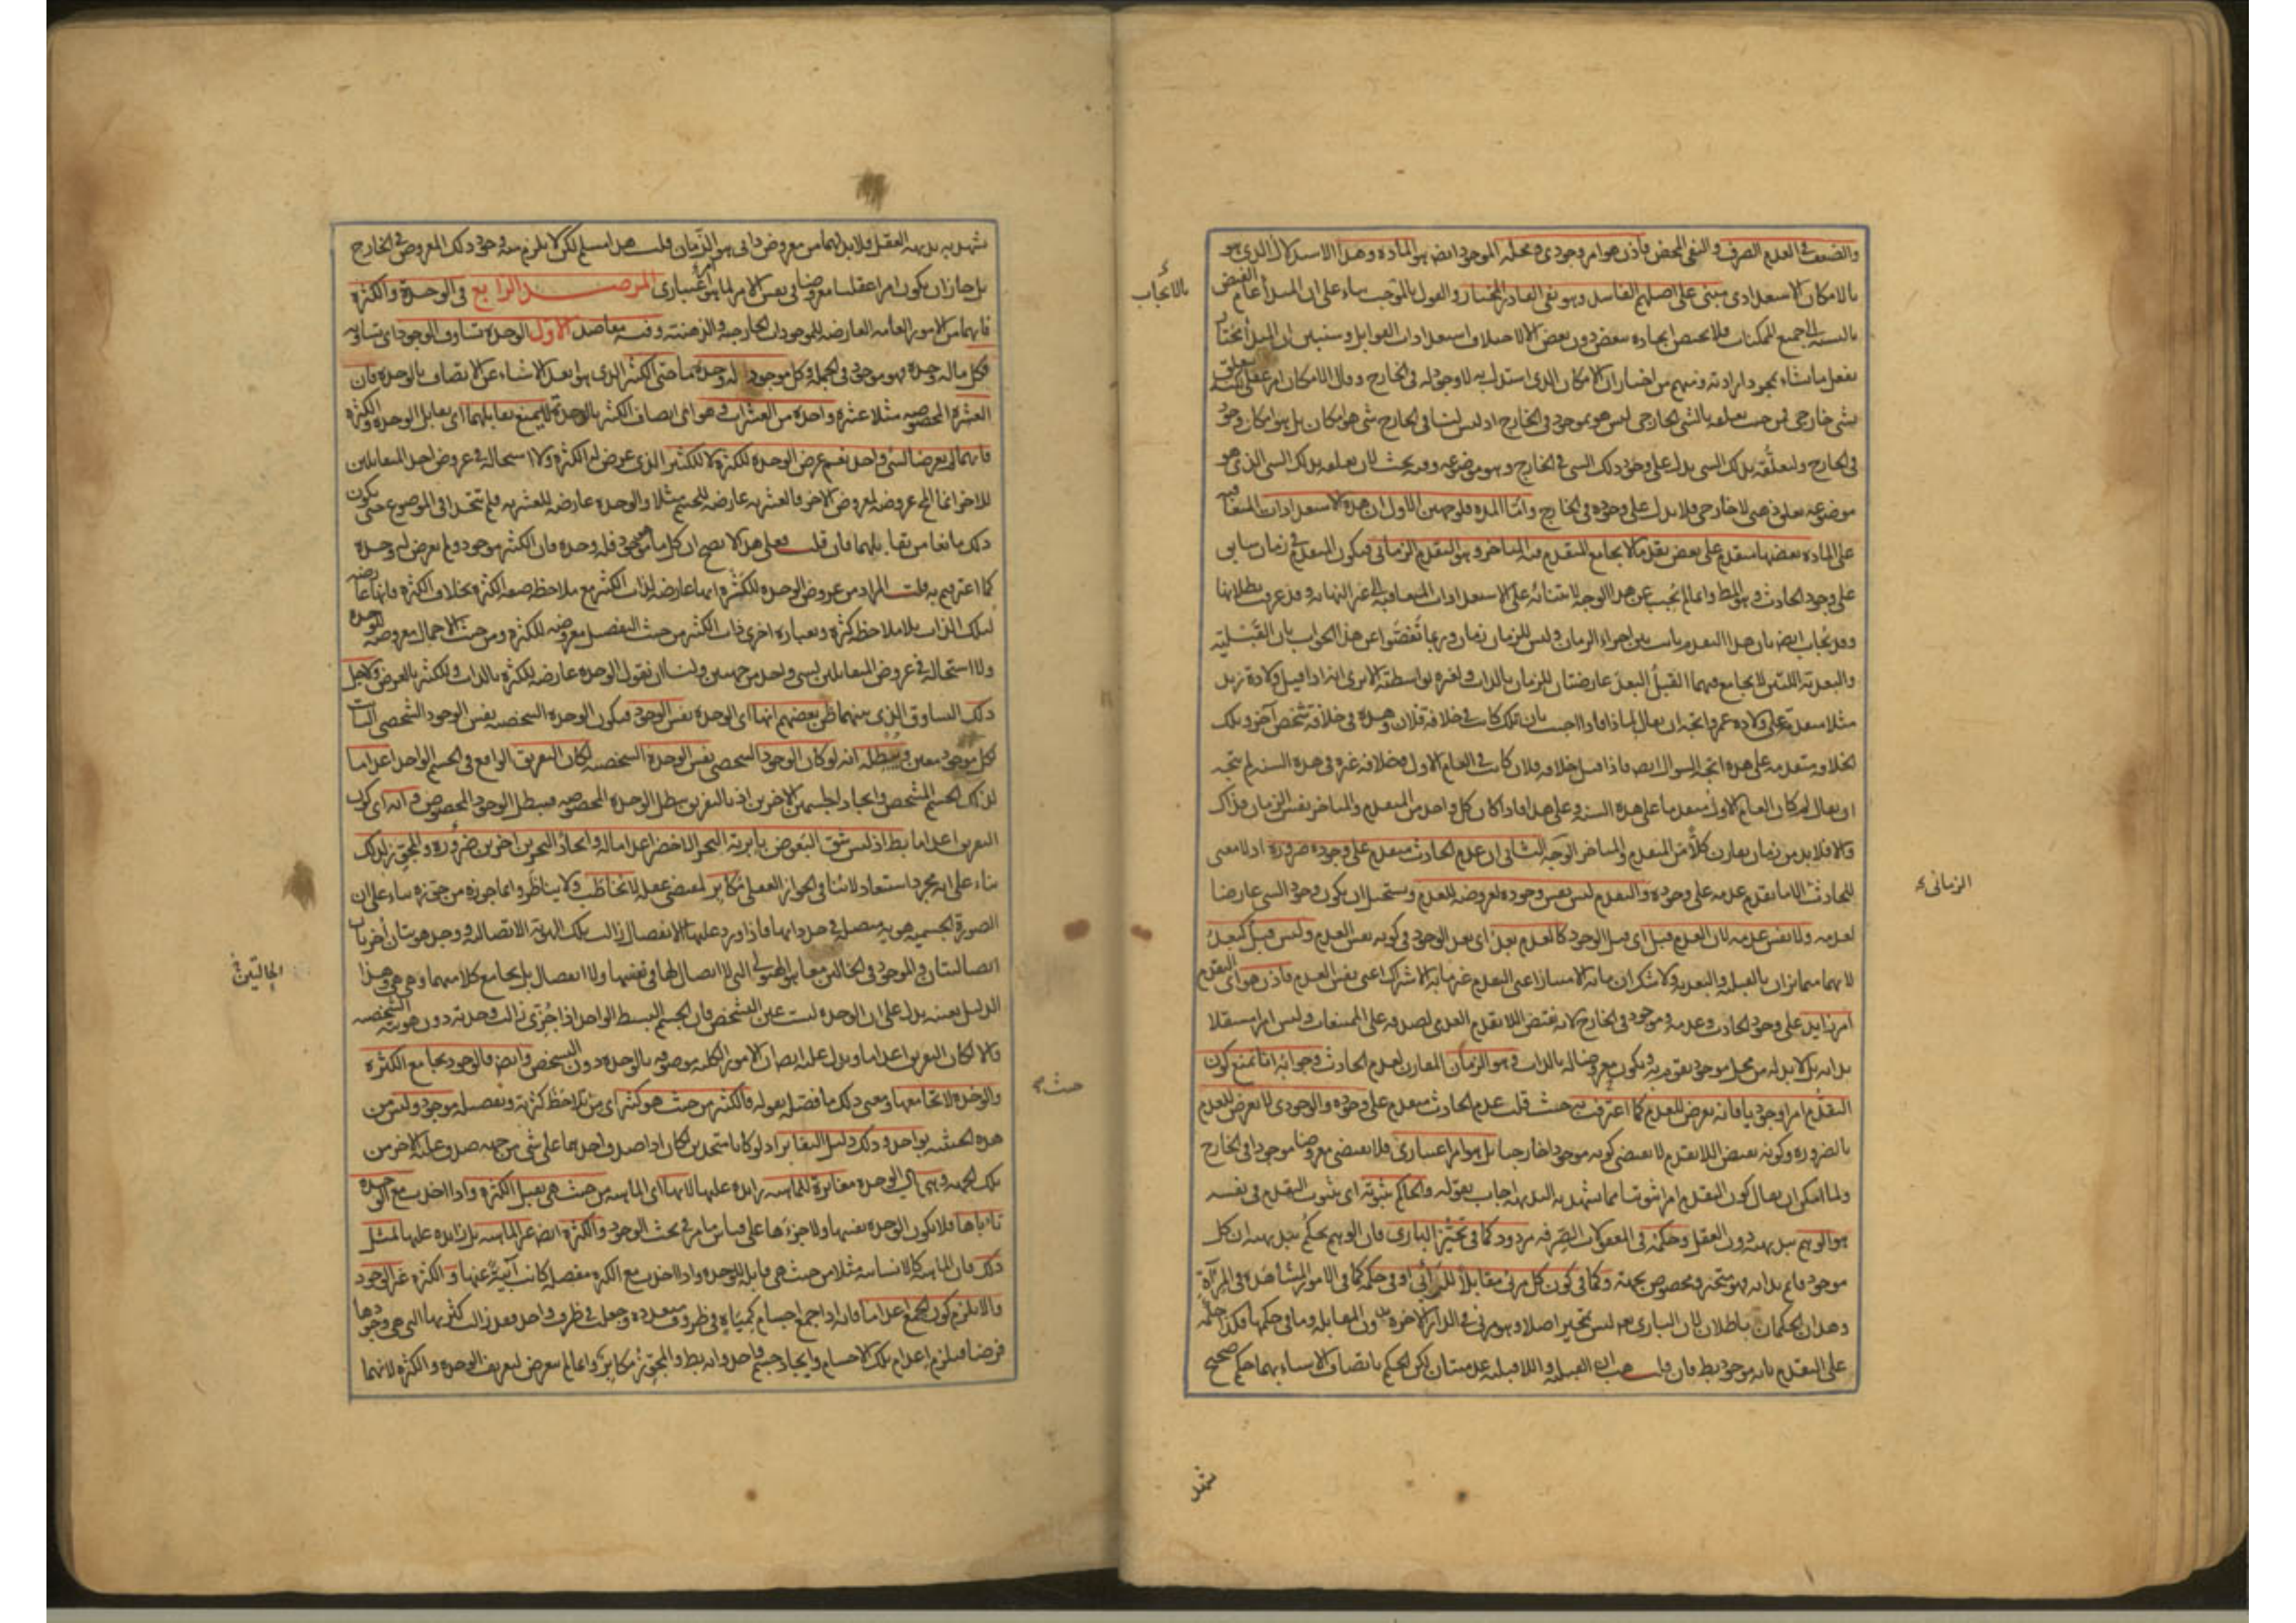 والضعف في العدم الصرف والنفي المحض فاذن هو امر وجودي ومحله الموجود ايضا هو المادة وهذا الاستدلال الذي هو
بالامكان الاستعدادي مبني على اصلهم الفاسد وهو نفي القادر المختار والقول بالموجب بناء على ان المبدأ عام الفيض
بالايجاب
بالنسبة الى جميع الممكنات فلا يختص ايجاده ببعض دون بعض الا لاختلاف استعدادات القوابل وستبين ان المبدأ مختار
يفعل ما يشاء بمجرد ارادته ومنهم من اختار ان الامكان الذي استدل به لا وجود له في الخارج وقال الامكان امر عقلي لكنه يتعلق
بشي خارجي فمن حيث تعلقه بالشي الخارجي ليس هو بموجود في الخارج اذ ليس لنا في الخارج شي هو امكان بل هو امكان وجود
في الخارج ولتعلقه بذلك الشي يدل على وجود ذلك الشي في الخارج وهو موضوعه وفيه بحث لان تعلقه بذلك الشي الذي هو
موضوعه تعلق ذهني لا خارجي فلا يدل على وجوده في الخارج واما المدة فلوجهين الاول ان هذه الاستعدادات المتعاقبة
على المادة بعضها متقدم على بعض تقدما لا يجامع المتقدم فيه المتاخر وهو التقدم الزماني فيكون المتقدم في زمان سابق
على وجود الحادث وهو المط وانما لم نجب عن هذا الوجه لابتنائه على الاستعدادات المتعاقبة الى غير النهاية وقد عرفت بطلانها
وقد يجاب ايضا بان هذا التقدم ثابت بين اجزاء الزمان وليس للزمان زمان وربما تفصوا عن هذا الجواب بان القبلية
والبعدية اللتين لا يجامع فيهما القبل البعد عارضتان للزمان بالذات ولغيره بواسطته الا يرى انه اذا قيل ولادة زيد
مثلا متقدمة على ولادة عمرو اتجه ان يقال لماذا فاذا اجيب بان تلك كانت في خلافة فلان وهذه في خلافة شخص آخر وتلك
الخلافة متقدمة على هذه اتجه السؤال ايضا فاذا قيل خلافة فلان كانت في العام الاول وخلافة غيره في هذه السنة لم يتجه
ان يقال لم كان العام الاول متقدما على هذه السنة وعلى هذا فاذا كان كل واحد من المتقدم والمتاخر نفس الزمان فذاك
والا فلا بد من زمان يقارن كلا من المتقدم والمتاخر الوجه الثاني ان عدم الحادث متقدم على وجوده ضرورة اذ لا معنى
للحادث الا ما تقدم عدمه على وجوده والتقدم ليس نفس وجوده لعروضه للعدم ويستحيل ان يكون وجود الشي عارضا
الزماني
لعدمه ولا نفس عدمه لان العدم قبل اي قبل الوجود كالعدم بعد اي بعد الوجود في كونه نفس العدم وليس قبل كبعد
لانهما متمايزان بالقبلية والبعدية ولا شك ان ما به الامتياز اعني التقدم غير ما به الاشتراك اعني نفس العدم فاذن هو اي التقدم
امر زايد على وجود الحادث وعدمه وموجود في الخارج لانه نقيض اللا تقدم العدمي لصدقه على الممتنعات وليس امرا مستقلا
بذاته بل لا بد له من محل موجود يقوم به ويكون معروضا له بالذات وهو الزمان المقارن لعدم الحادث وجوابه انا نمنع كون
التقدم امرا وجوديا فانه يعرض للعدم كما اعترفت به حيث قلت عدم الحادث متقدم على وجوده والوجودي لا يعرض للعدم
بالضرورة وكونه نقيض اللا تقدم لا يقتضي كونه موجودا خارجيا بل هو امر اعتباري فلا يقتضي معروضا موجودا في الخارج
ولما امكن ان يقال كون التقدم امرا ثبوتيا مما تشهد به البديهة اجاب بقوله والحاكم بثبوته اي ثبوت التقدم في نفسه
هو الوهم ببديهته دون العقل وحكمه في المعقولات الصرفة مردود كما في تحيز الباري فان الوهم يحكم ببديهته ان كل
موجود قائم بذاته فهو متحيز ومخصوص بجهة وكما في كون كل مرئي مقابلا للرائي او في حكمه كما في الامور المشاهدة في المرآة
وهذان الحكمان باطلان لان الباري تعالى ليس بمتحيز اصلا وهو مرئي في الدار الآخرة بدون المقابلة وما في حكمها فكذا حكمه
على التقدم بانه موجود بط فان قلت هب ان القبلية واللاقبلية عدميتان لكن الحكم باتصاف الاشياء بهما حكم صحيح
تشهد
تشهد به بديهة العقل فلا بد لهما من معروض ذاتي هو الزمان قلت هذا مسلم لكن لا يلزم منه وجود ذلك المعروض في الخارج
بل جاز ان يكون امرا عقليا معروضا في نفس الامر لما هو امر اعتباري المرصد الرابع في الوحدة والكثرة
فانهما من الامور العامة العارضة للموجودات الخارجية والذهنية وفيه مقاصد الاول الوحدة تساوق الوجود اي تساويه
فكل ما له وحدة فهو موجود في الجملة وكل موجود له وحدة ما حتى الكثير الذي هو ابعد الاشياء عن الاتصاف بالوحدة فان
العشرة المخصوصة مثلا عشرة واحدة من العشرات فهو اعني اتصاف الكثير بالوحدة لا يمنع تقابلهما اي تقابل الوحدة والكثرة
فانهما لم يعرضا لشي واحد نعم عرض الوحدة للكثرة لا للكثير الذي عرض له الكثرة ولا استحالة في عروض احد المتقابلين
للآخر انما المح عروضه لمعروض الاخر فالعشرية عارضة للجسم مثلا والوحدة عارضة للعشرية فلم تتحدا في الموضوع حتى يكون
ذلك مانعا من تقابلهما فان قلت فعلى هذا لا يصح ان كل ما هو موجود فله وحدة فان الكثير موجود ولم يعرض له وحدة
كما اعترفتم به قلت المراد من عروض الوحدة للكثرة انها عارضة لذات الكثير مع ملاحظة صفة الكثرة بخلاف الكثرة فانها عارضة
لتلك الذات بلا ملاحظة كثرة وبعبارة اخرى ذات الكثير من حيث التفصيل معروضه للكثرة ومن حيث الاجمال معروضة للوحدة
ولا استحالة في عروض المتقابلين لشي واحد من جهتين ولنا ان نقول الوحدة عارضة للكثرة بالذات وللكثير بالعرض ولاجل
ذلك التساوق الذي بينهما ظن بعضهم انها اي الوحدة نفس الوجود فيكون الوحدة الشخصية نفس الوجود الشخصي الثابت
لكل موجود معين ويبطله انه لو كان الوجود الشخصي نفس الوحدة الشخصية لكان التفريق الواقع في الجسم الواحد اعداما
لذلك الجسم المشخص وايجادا لجسمين آخرين اذ بالتفريق يبطل الوحدة المخصوصة فيبطل الوجود المخصوص وانه اي كون
التفريق اعداما بط اذ ليس شق البعوض بابرته البحر الاخضر اعداما له وايجادا لبحرين آخرين ضرورة والمجوز لذلك
بناء على انه مجرد استبعاد لا ينافي الجواز العقلي مكابر لمقتضى عقله لا يخاطب ولا يناظر وانما جوزه من جوزه بناء على ان
الصورة الجسمية هوية متصلة في حد ذاتها فاذا ورد عليها الانفصال زالت تلك الهوية الاتصالية ووجد هويتان أخريان
اتصاليتان والموجود في الحالتين معا هو الهيولى التي لا اتصال لها في نفسها ولا انفصال بل يجامع كلا منهما وهي هي وهذا
الحالتين
الدليل بعينه يدل على ان الوحدة ليست عين التشخص فان الجسم البسيط الواحد اذا جزئ زالت وحدته دون هويته الشخصية
والا لكان التفريق اعداما ويدل عليه ايضا ان الامور الكلية موصوفة بالوحدة دون التشخص وايضا فالوجود يجامع الكثرة
والوحدة لا تجامعها ومعنى ذلك ما فصله بقوله فالكثير من حيث هو كثير اي من تلاحظ كثرته وتفصيله موجود وليس من
حيث
هذه الحيثية بواحد وذلك دليل التغاير اذ لو كانا متحدين لكان اذا صدق احدهما على شي من جهة صدق عليه الاخر من
تلك الجهة وهي اي الوحدة مغايرة للماهية زايدة عليها لانها اي الماهية من حيث هي تقبل الكثرة واذا اخذت مع الوحدة
تاباها فلا يكون الوحدة نفسها ولا جزءها على قياس ما مر في بحث الوجود والكثرة ايضا غير الماهية بل زايدة عليها لمثل
ذلك فان الماهية كالانسانية مثلا من حيث هي قابلة للوحدة واذا اخذت مع الكثرة مفصلة كانت آبية عنها والكثرة غير الوجود
والا يلزم كون الجمع اعداما فانه اذا جمع اجسام كمياه في ظروف متعددة وجعلت في ظرف واحد فقد زالت كثرتها التي هي وجودها
فرضا فيلزم اعدام تلك الاجسام وايجاد جسم واحد وانه بط والمجوز مكابر وانما لم يتعرض لتعريف الوحدة والكثرة لانهما